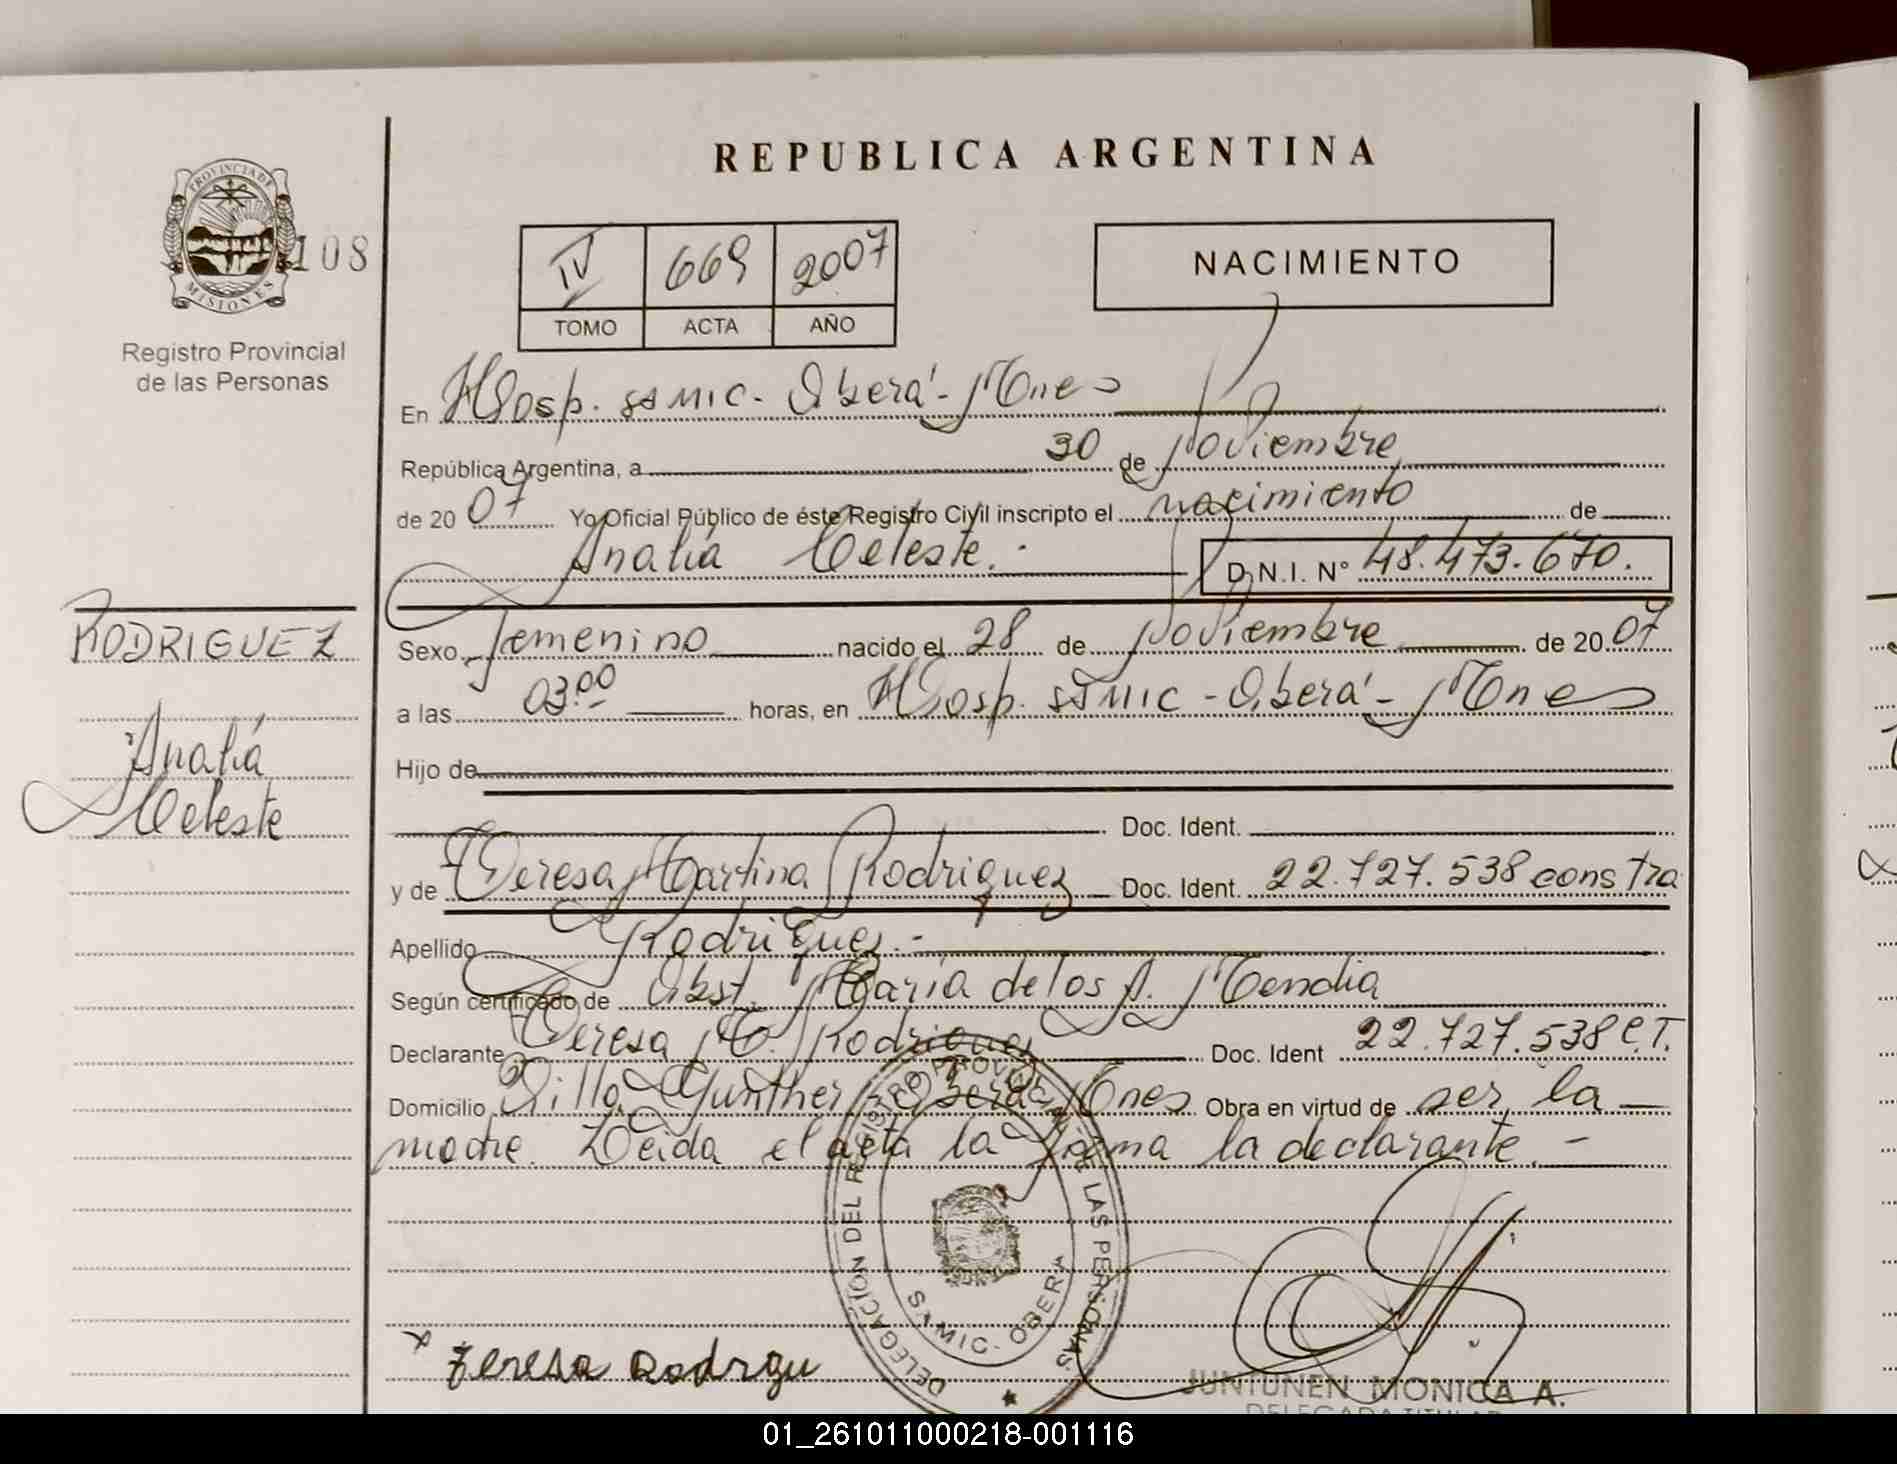 REPUBLICA ARGENTINA
PROVINCIA DE
MISIONES
108
Registro Provincial
de las Personas
IV 669 2007
TOMO ACTA AÑO
NACIMIENTO
En Hosp. SAMIC - Oberá - Mnes
República Argentina, a 30 de Noviembre
de 2007 Yo Oficial Público de éste Registro Civil inscripto el nacimiento de
Analía Celeste.- D.N.I. Nº 48.473.670.
RODRIGUEZ
Analía
Celeste
Sexo femenino nacido el 28 de Noviembre de 2007
a las 03:00 horas, en Hosp. SAMIC - Oberá - Mnes
Hijo de
Doc. Ident.
y de Teresa Martina Rodriguez Doc. Ident. 22.727.538 constra
Apellido Rodriguez.-
Según certificado de Obst. María de los A. Mendia
Declarante Teresa M. Rodriguez Doc. Ident 22.727.538 C.T.
Domicilio Villa Gunther Oberá Mnes Obra en virtud de ser la
madre. Leida el acta la firma la declarante.-
DELEGACIÓN DEL REGISTRO PROVINCIAL DE LAS PERSONAS
SAMIC - OBERA
x Teresa Rodrgu
JUNTUNEN MONICA A.
DELEGADA TITULAR
01_261011000218-001116